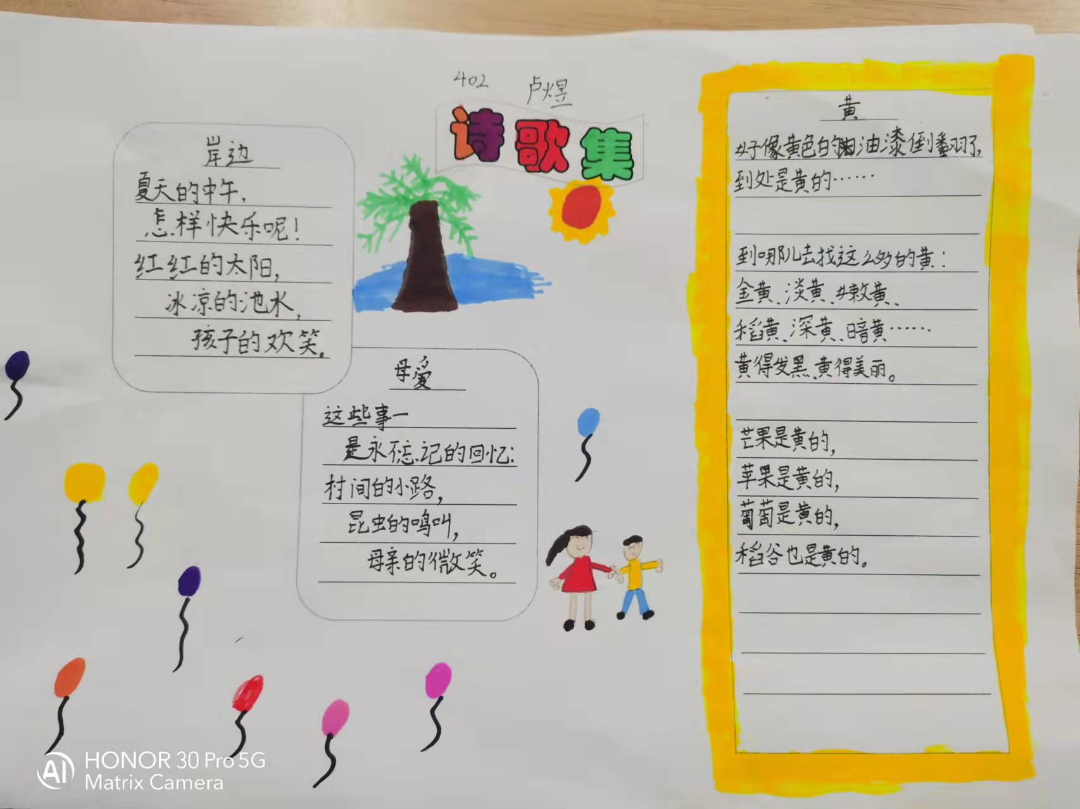 402 卢煜
诗歌集
岸边
夏天的中午,
怎样快乐呢!
红红的太阳,
冰凉的池水,
孩子的欢笑。
母爱
这些事一
是永忘记的回忆:
村间的小路,
昆虫的鸣叫,
母亲的微笑。
黄
好像黄色的油漆倒翻了,
到处是黄的……
到哪儿去找这么多的黄:
金黄、淡黄、嫩黄、
稻黄、深黄、暗黄……
黄得发黑、黄得美丽。
芒果是黄的,
苹果是黄的,
葡萄是黄的,
稻谷也是黄的。
HONOR 30 Pro 5G
AI Matrix Camera